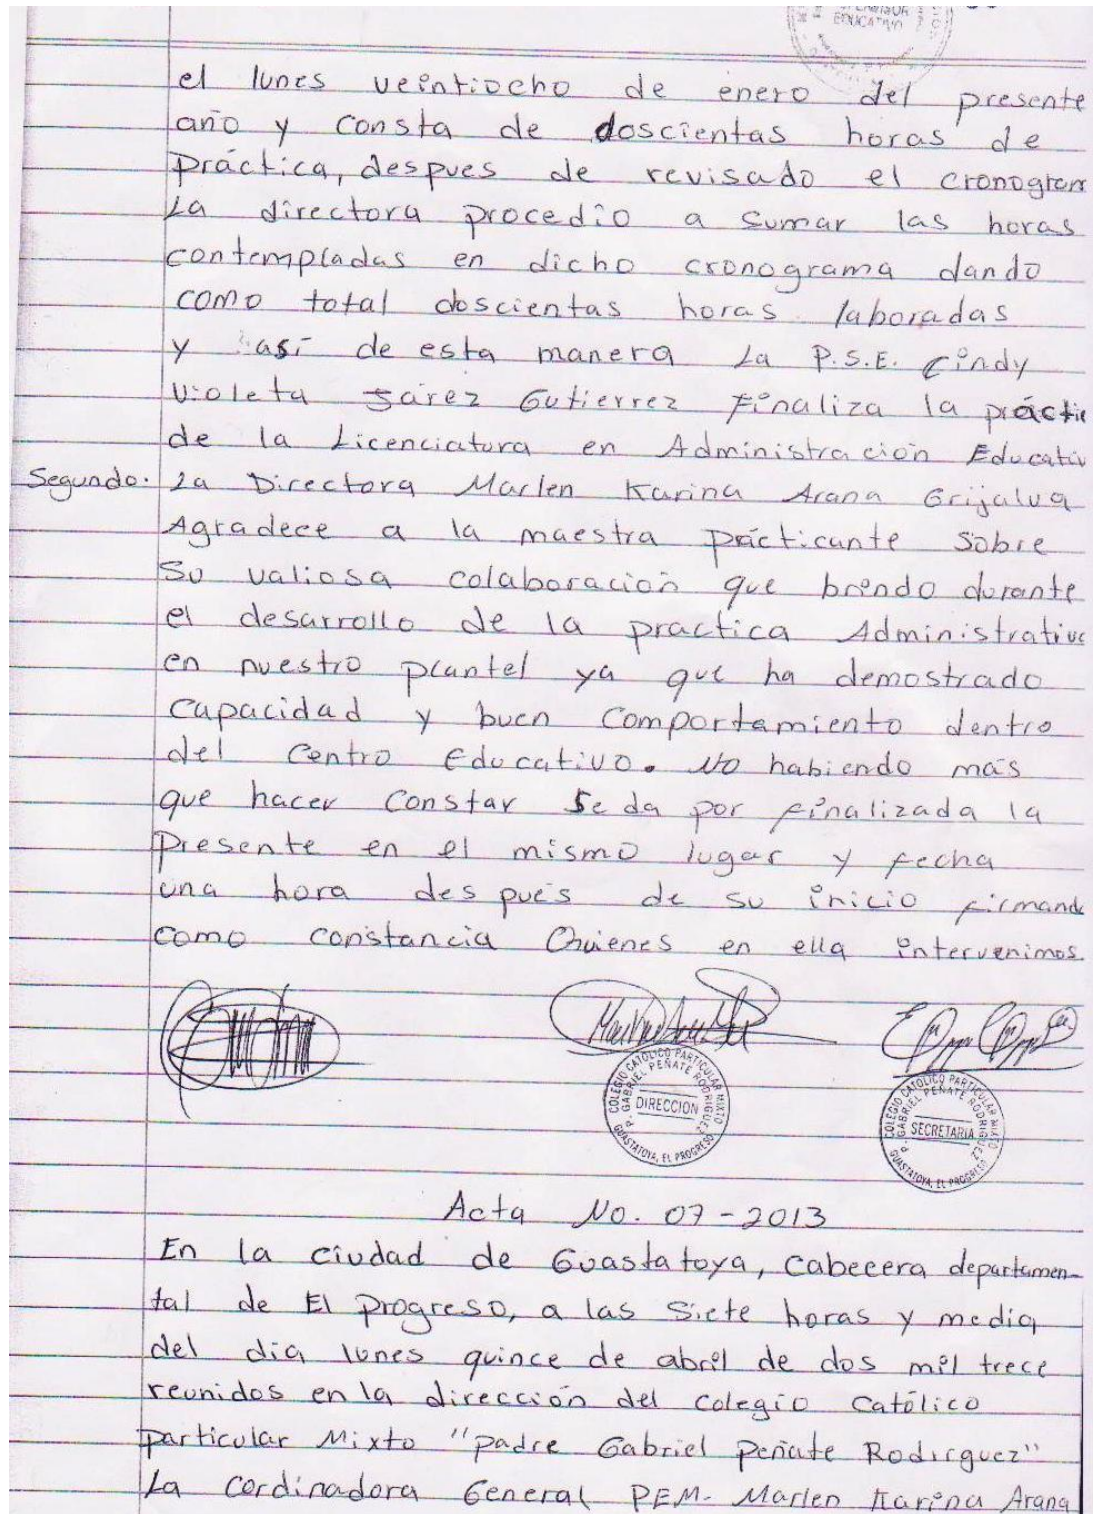 EDUCATIVO
el lunes veintiocho de enero del presente
año y Consta de doscientas horas de
Práctica, despues de revisado el cronogram
La directora procedio a sumar las horas
contempladas en dicho cronograma dando
como total doscientas horas laboradas
y así de esta manera La P.S.E. Cindy
Violeta Júrez Gutierrez Finaliza la práctic
de la Licenciatura en Administración Educativ
Segundo. La Directora Marlen Karina Arana Grijalva
Agradece a la maestra prácticante Sobre
Su valiosa colaboración que brindo durante
el desarrollo de la practica Administrativa
en nuestro plantel ya que ha demostrado
Capacidad y buen Comportamiento dentro
del Centro Educativo. No habiendo más
que hacer Constar Se da por finalizada la
Presente en el mismo lugar y fecha
una hora después de su inicio firmand
Como constancia Quienes en ella intervenimos.
COLEGIO CATOLICO PARTICULAR MIXTO
P. GABRIEL PEÑATE RODRIGUEZ
DIRECCION
GUASTATOYA, EL PROGRESO
COLEGIO CATOLICO PARTICULAR MIXTO
P. GABRIEL PEÑATE RODRIGUEZ
SECRETARIA
GUASTATOYA, EL PROGRESO
Acta No. 07-2013
En la ciudad de Guastatoya, Cabecera departamen-
tal de El Progreso, a las Siete horas y media
del día lunes quince de abril de dos mil trece
reunidos en la dirección del colegio Católico
particular Mixto "padre Gabriel Peñate Rodirguez"
La Cordinadora General PEM. Marlen Karina Arana